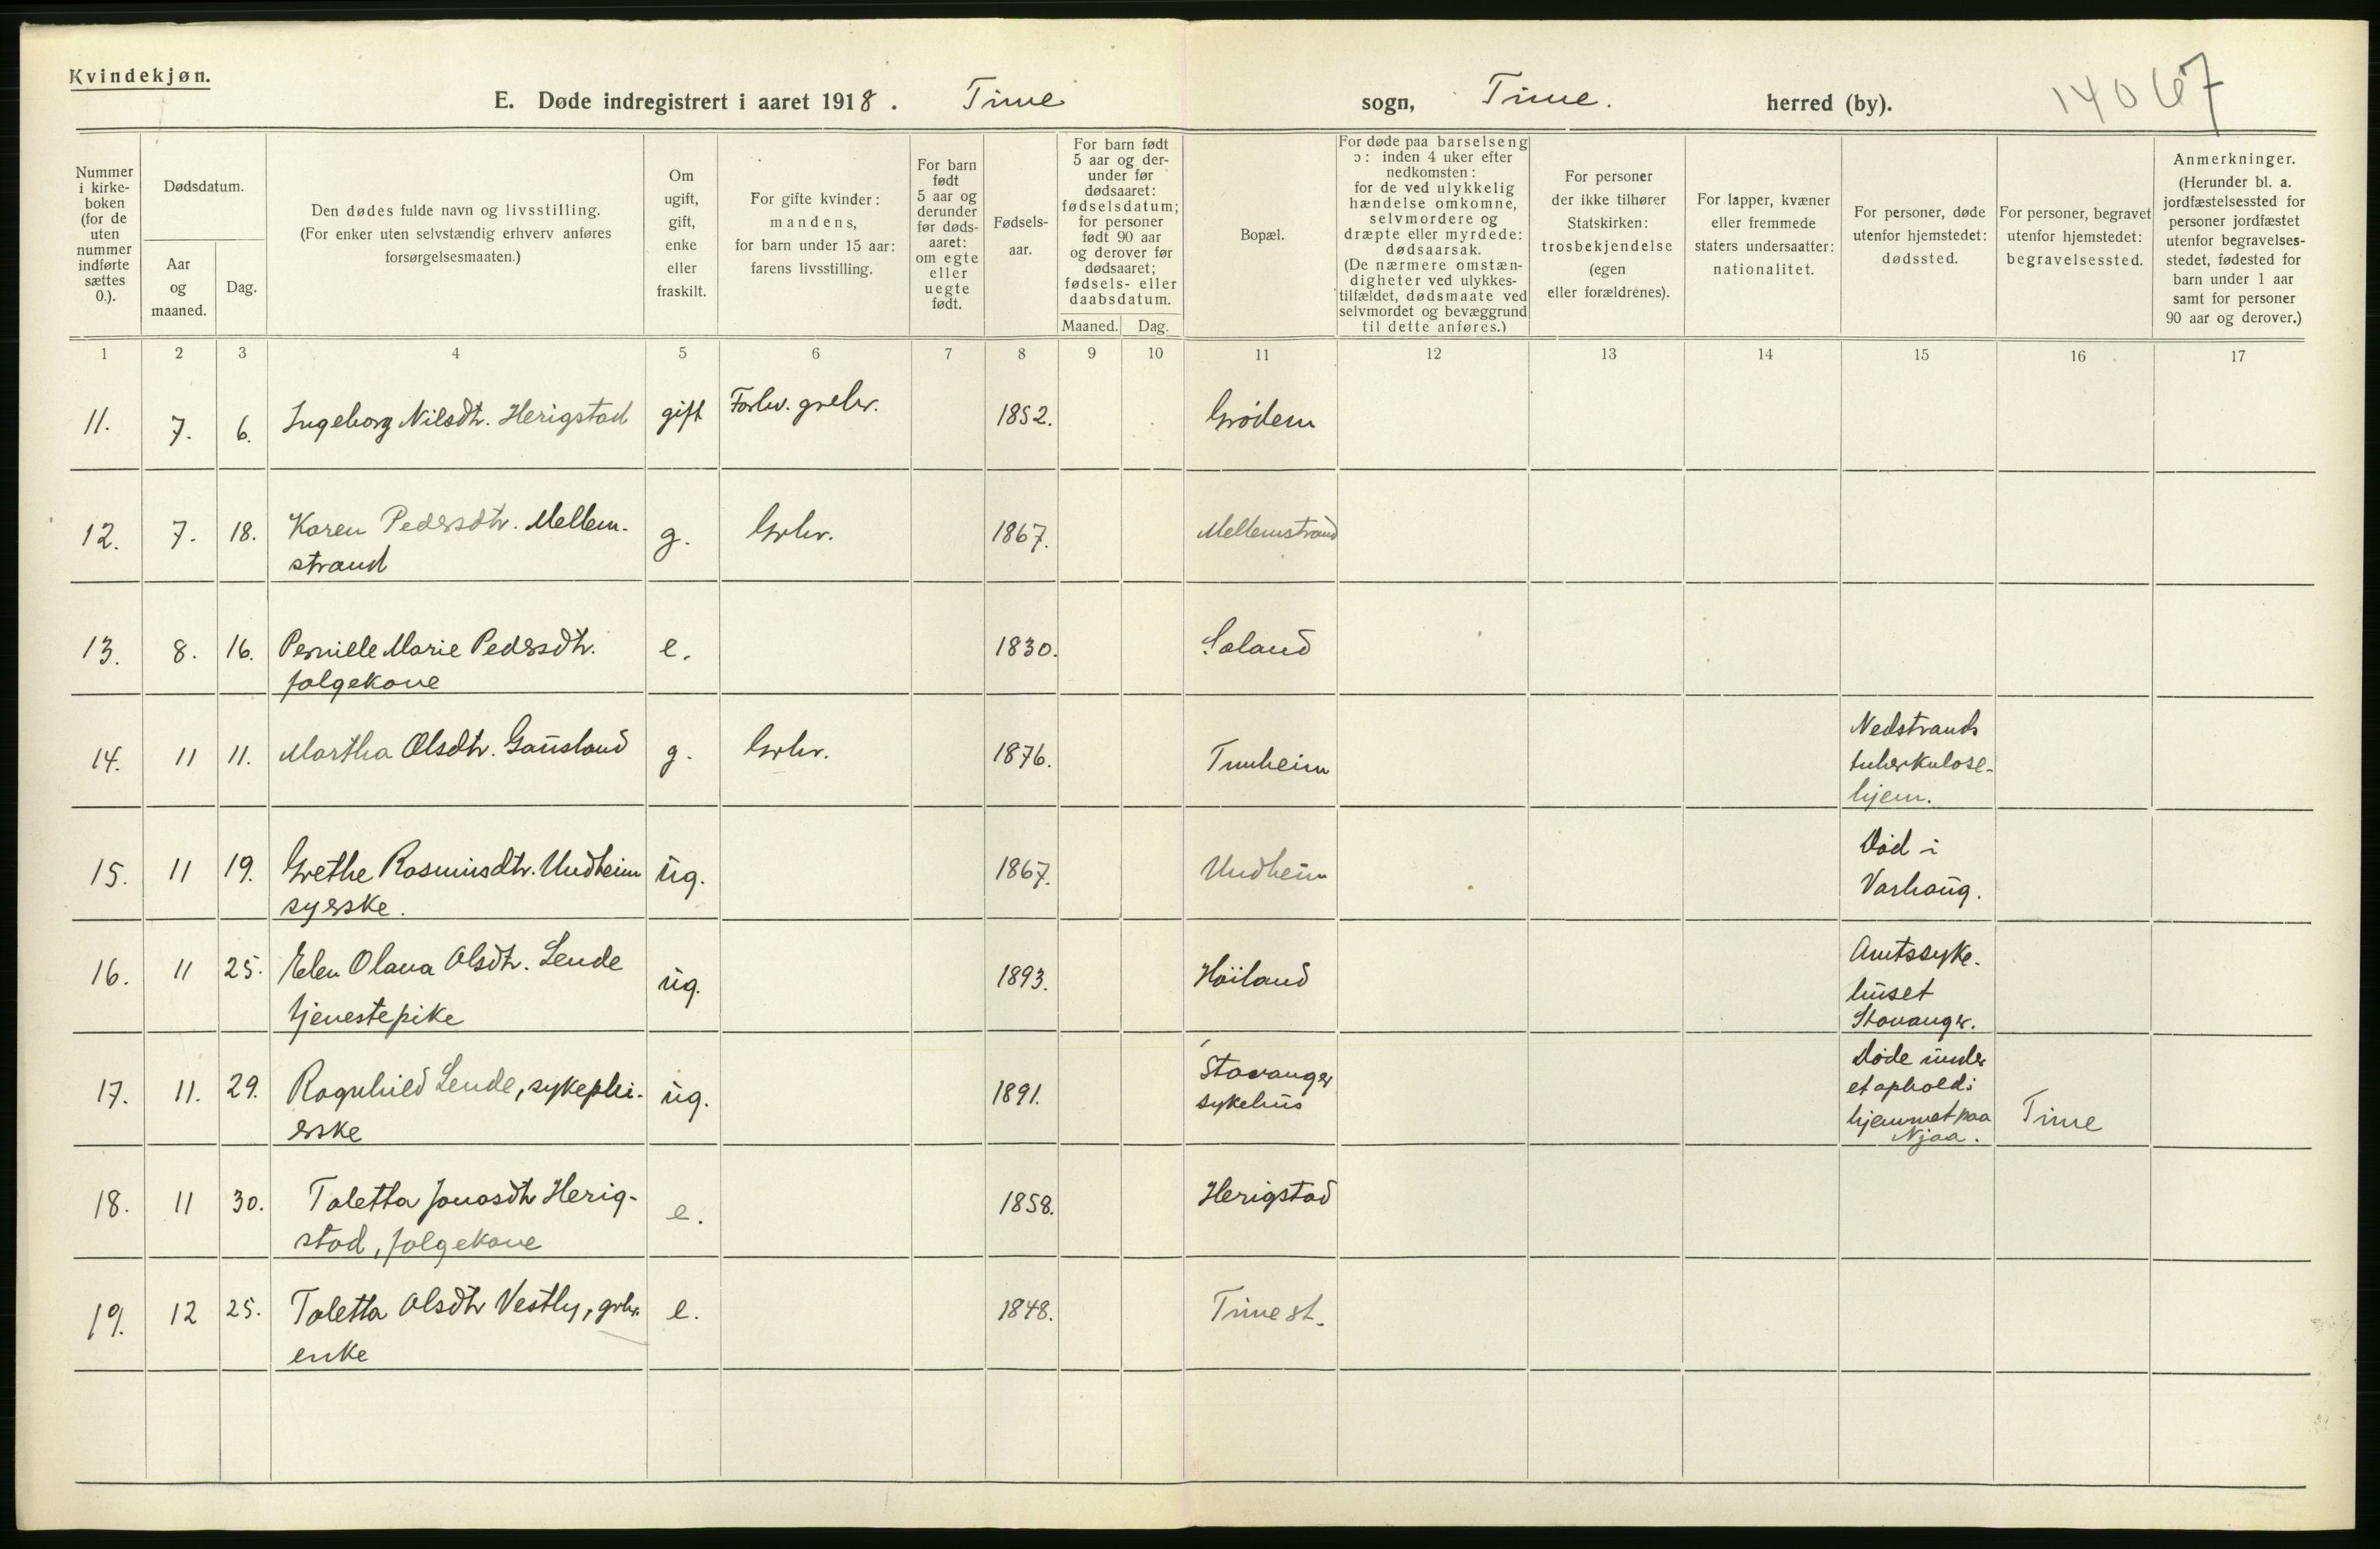 Kvindekjøn.
E. Døde indregistrert i aaret 1918. Time sogn, Time. herred (by). 14067
Nummer
i kirke-
boken
(for de
uten
nummer
indførte
sættes
0.).
Dødsdatum.
Aar
og
maaned.
Dag.
Den dødes fulde navn og livsstilling.
(For enker uten selvstændig erhverv anføres
forsørgelsesmaaten.)
Om
ugift,
gift,
enke
eller
fraskilt.
For gifte kvinder:
mandens,
for barn under 15 aar:
farens livsstilling.
For barn
født
5 aar og
derunder
før døds-
aaret:
om egte
eller
uegte
født.
Fødsels-
aar.
For barn født
5 aar og der-
under før
dødsaaret:
fødselsdatum;
for personer
født 90 aar
og derover før
dødsaaret;
fødsels- eller
daabsdatum.
Maaned. Dag.
Bopæl.
For døde paa barselseng
ɔ: inden 4 uker efter
nedkomsten:
for de ved ulykkelig
hændelse omkomne,
selvmordere og
dræpte eller myrdede:
dødsaarsak.
(De nærmere omstæn-
digheter ved ulykkes-
tilfældet, dødsmaate ved
selvmordet og bevæggrund
til dette anføres.)
For personer
der ikke tilhører
Statskirken:
trosbekjendelse
(egen
eller forældrenes).
For lapper, kvæner
eller fremmede
staters undersaatter:
nationalitet.
For personer, døde
utenfor hjemstedet:
dødssted.
For personer, begravet
utenfor hjemstedet:
begravelsessted.
Anmerkninger.
(Herunder bl. a.
jordfæstelsessted for
personer jordfæstet
utenfor begravelses-
stedet, fødested for
barn under 1 aar
samt for personer
90 aar og derover.)
1 2 3 4 5 6 7 8 9 10 11 12 13 14 15 16 17
11. 7. 6. Ingeborg Nilsdtr. Herigstad gift Forhv. grdbr. 1852. Grødem
12. 7. 18. Karen Pedersdtr. Mellem-
strand g. Grbr. 1867. Mellemstrand
13. 8. 16. Pernille Marie Pedersdtr.
folgekone e. 1830. Soland
14. 11 11. Martha Olsdtr. Gausland g. Grbr. 1876. Tunheim Nedstrands
tuberkulose-
hjem.
15. 11 19. Grethe Rasmusdtr. Undheim
syerske. ug. 1867. Undheim Død i
Varhaug.
16. 11 25. Elen Olava Olsdtr. Lende
tjenestepike ug. 1893. Høiland Amtssyke-
huset
Stavanger.
17. 11. 29. Ragnhild Lende, sykeplei-
erske ug. 1891. Stavanger
sykehus Døde under
et ophold i
hjemmet paa
Njaa. Time
18. 11 30. Taletta Jonasdtr Herig-
stad, folgekone e. 1858. Herigstad
19. 12 25. Taletta Olsdtr Vestly, grbr.
enke e. 1848. Time st.